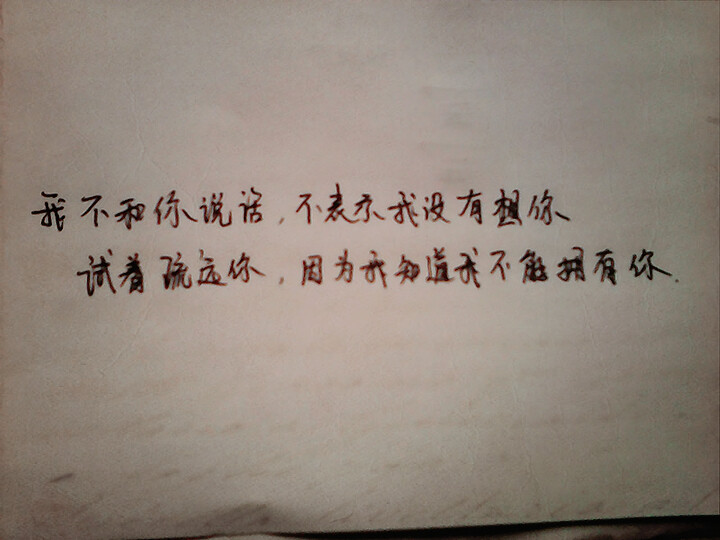 我不和你说话,不表示我没有想你
试着疏远你,因为我知道我不能拥有你.